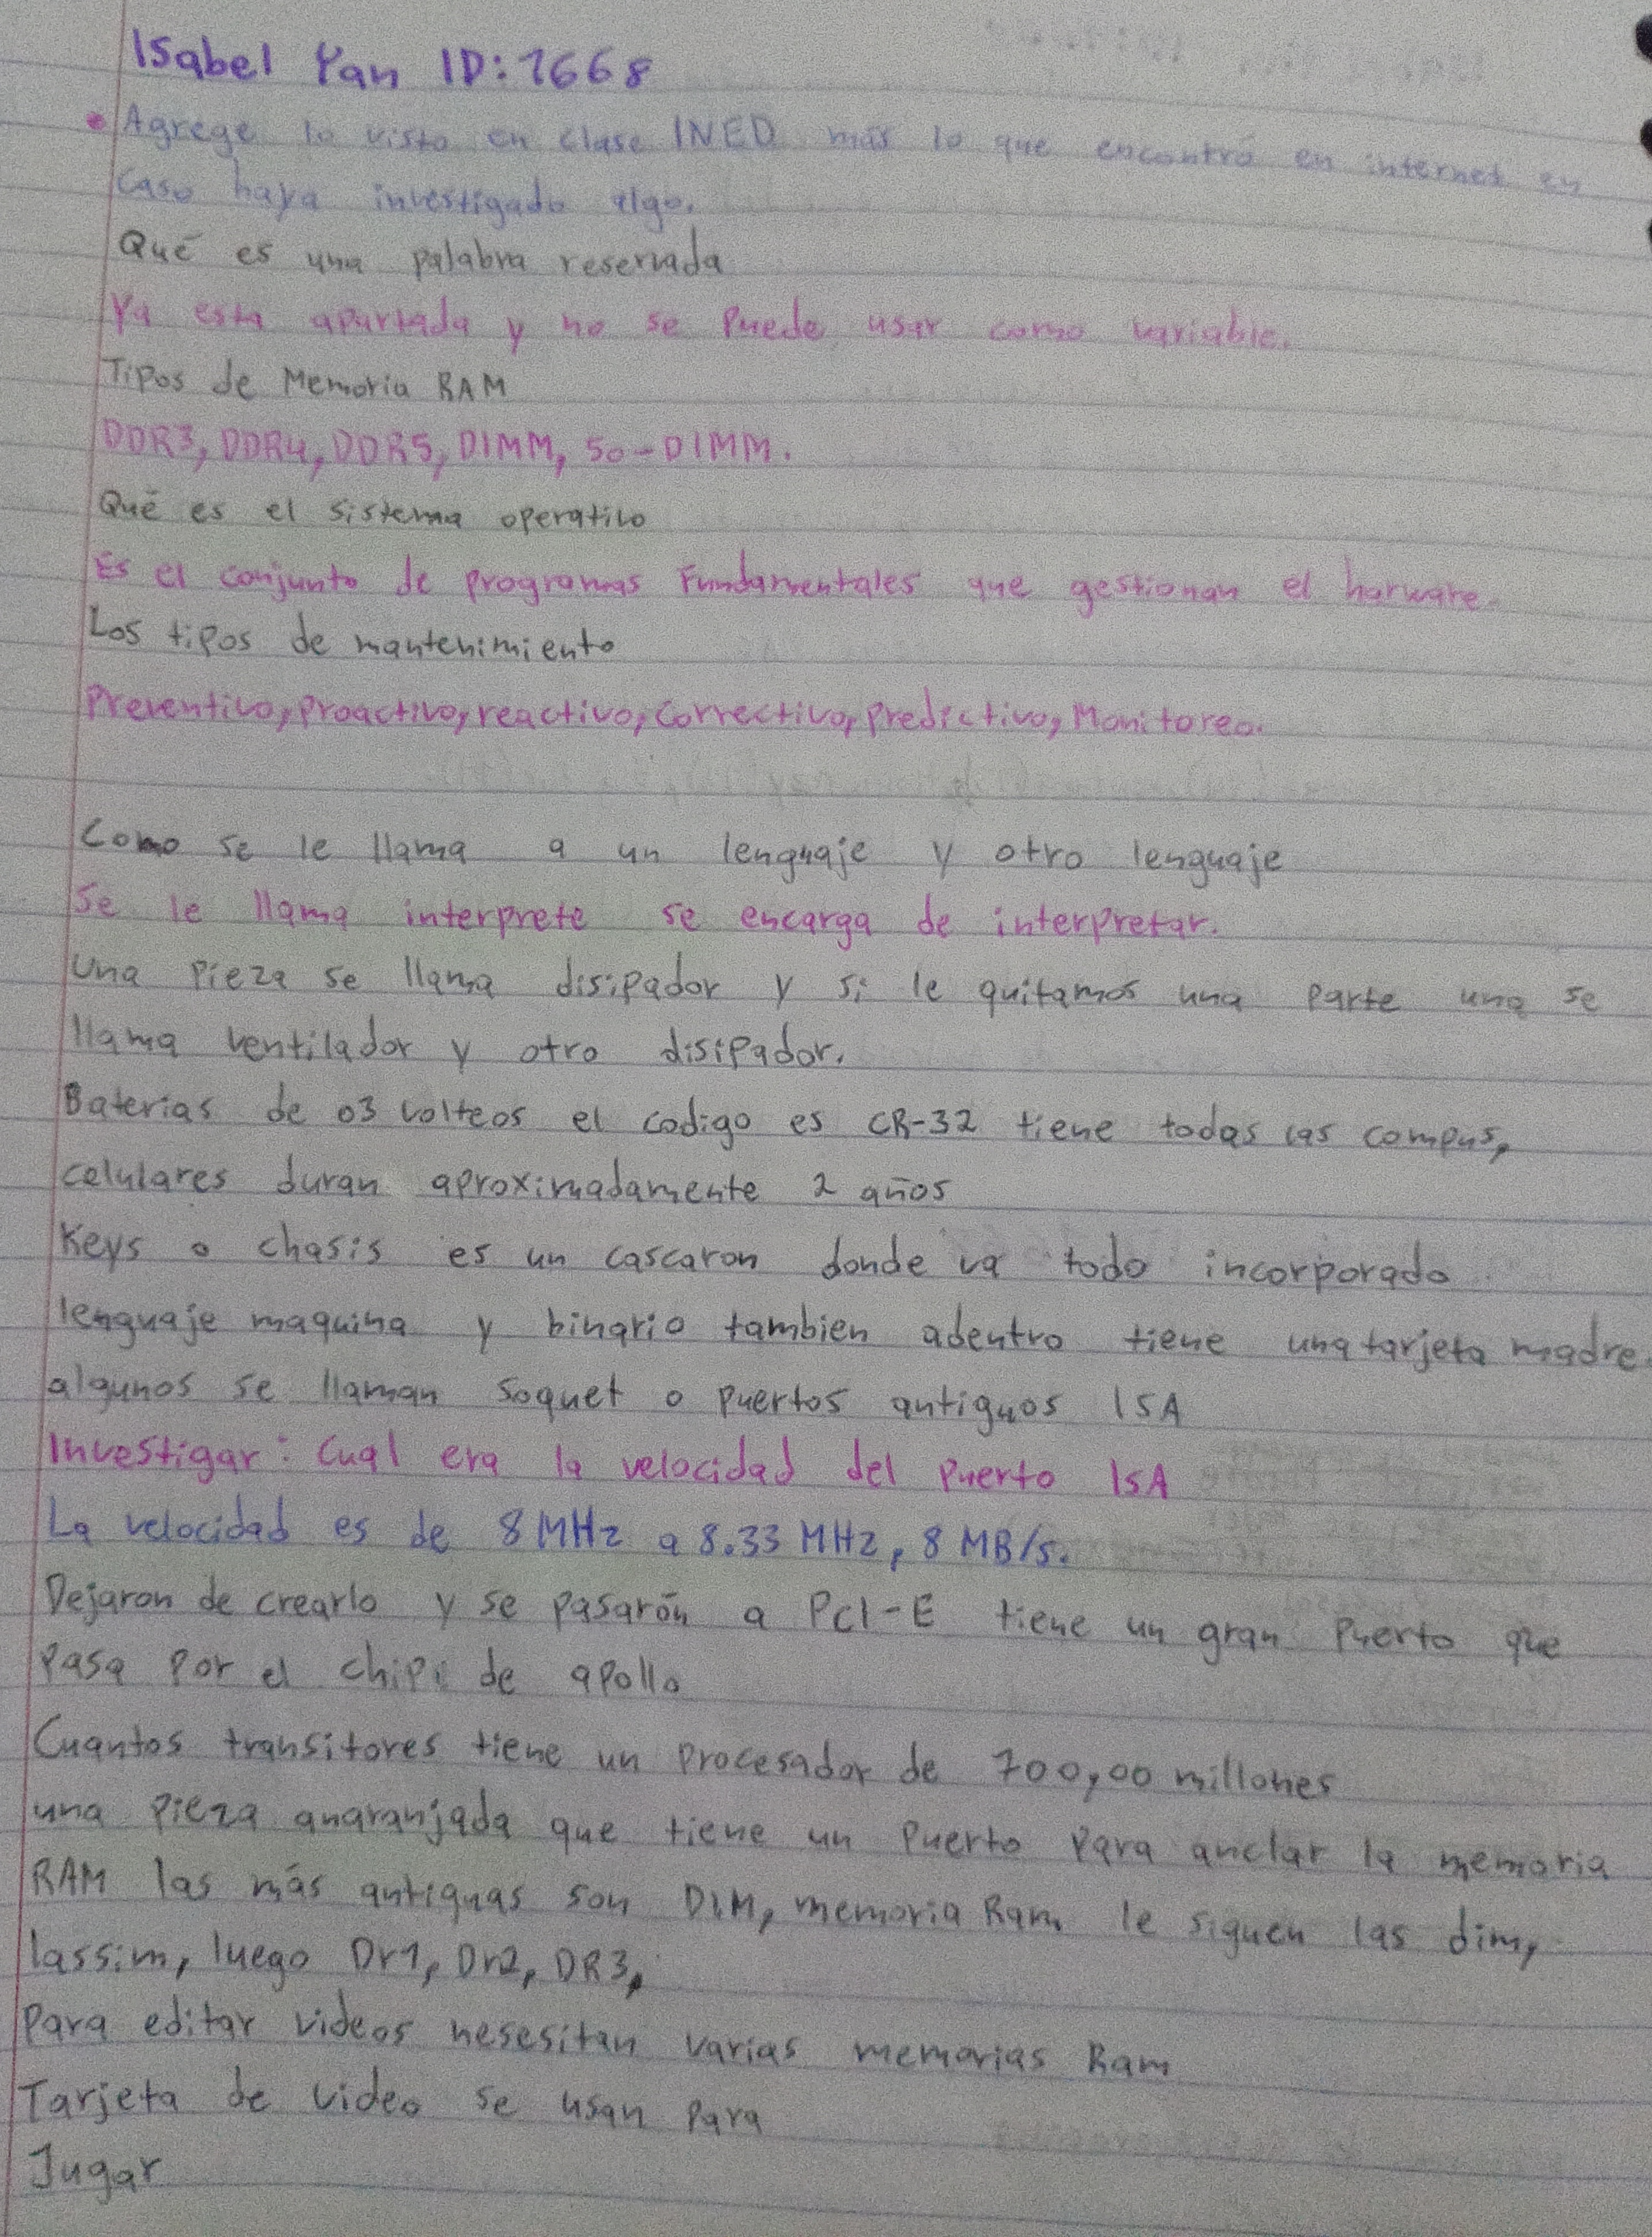 Isabel Yan ID: 1668
• Agrege lo visto en clase INED más lo que encontró en internet en
caso haya investigado algo.
Qué es una palabra reservada
Ya esta apartada y no se puede usar como variable.
Tipos de Memoria RAM
DDR3, DDR4, DDR5, DIMM, SO-DIMM.
Qué es el sistema operativo
Es el conjunto de programas Fundamentales que gestionan el harware.
Los tipos de mantenimiento
Preventivo, proactivo, reactivo, Correctivo, Predictivo, Monitoreo.
Como se le llama a un lenguaje y otro lenguaje
Se le llama interprete se encarga de interpretar.
Una pieza se llama disipador y si le quitamos una parte una se
llama ventilador y otro disipador.
Baterias de 03 volteos el codigo es CR-32 tiene todas las compus,
celulares duran aproximadamente 2 años
Keys o chasis es un cascaron donde va todo incorporado
lenguaje maquina y binario tambien adentro tiene una tarjeta madre
algunos se llaman soquet o puertos antiguos ISA
Investigar: Cual era la velocidad del puerto ISA
La velocidad es de 8 MHz a 8.33 MHz, 8 MB/s.
Dejaron de crearlo y se pasarón a PCI-E tiene un gran Puerto que
pasa por el chip de apollo
Cuantos transitores tiene un procesador de 700,00 millones
una pieza anaranjada que tiene un puerto para anclar la memoria
RAM las más antiguas son DIM, memoria Ram le siguen las dim,
lassim, luego Dr1, Dr2, DR3,
Para editar videos nesesitan varias memorias Ram
Tarjeta de video se usan para
Jugar